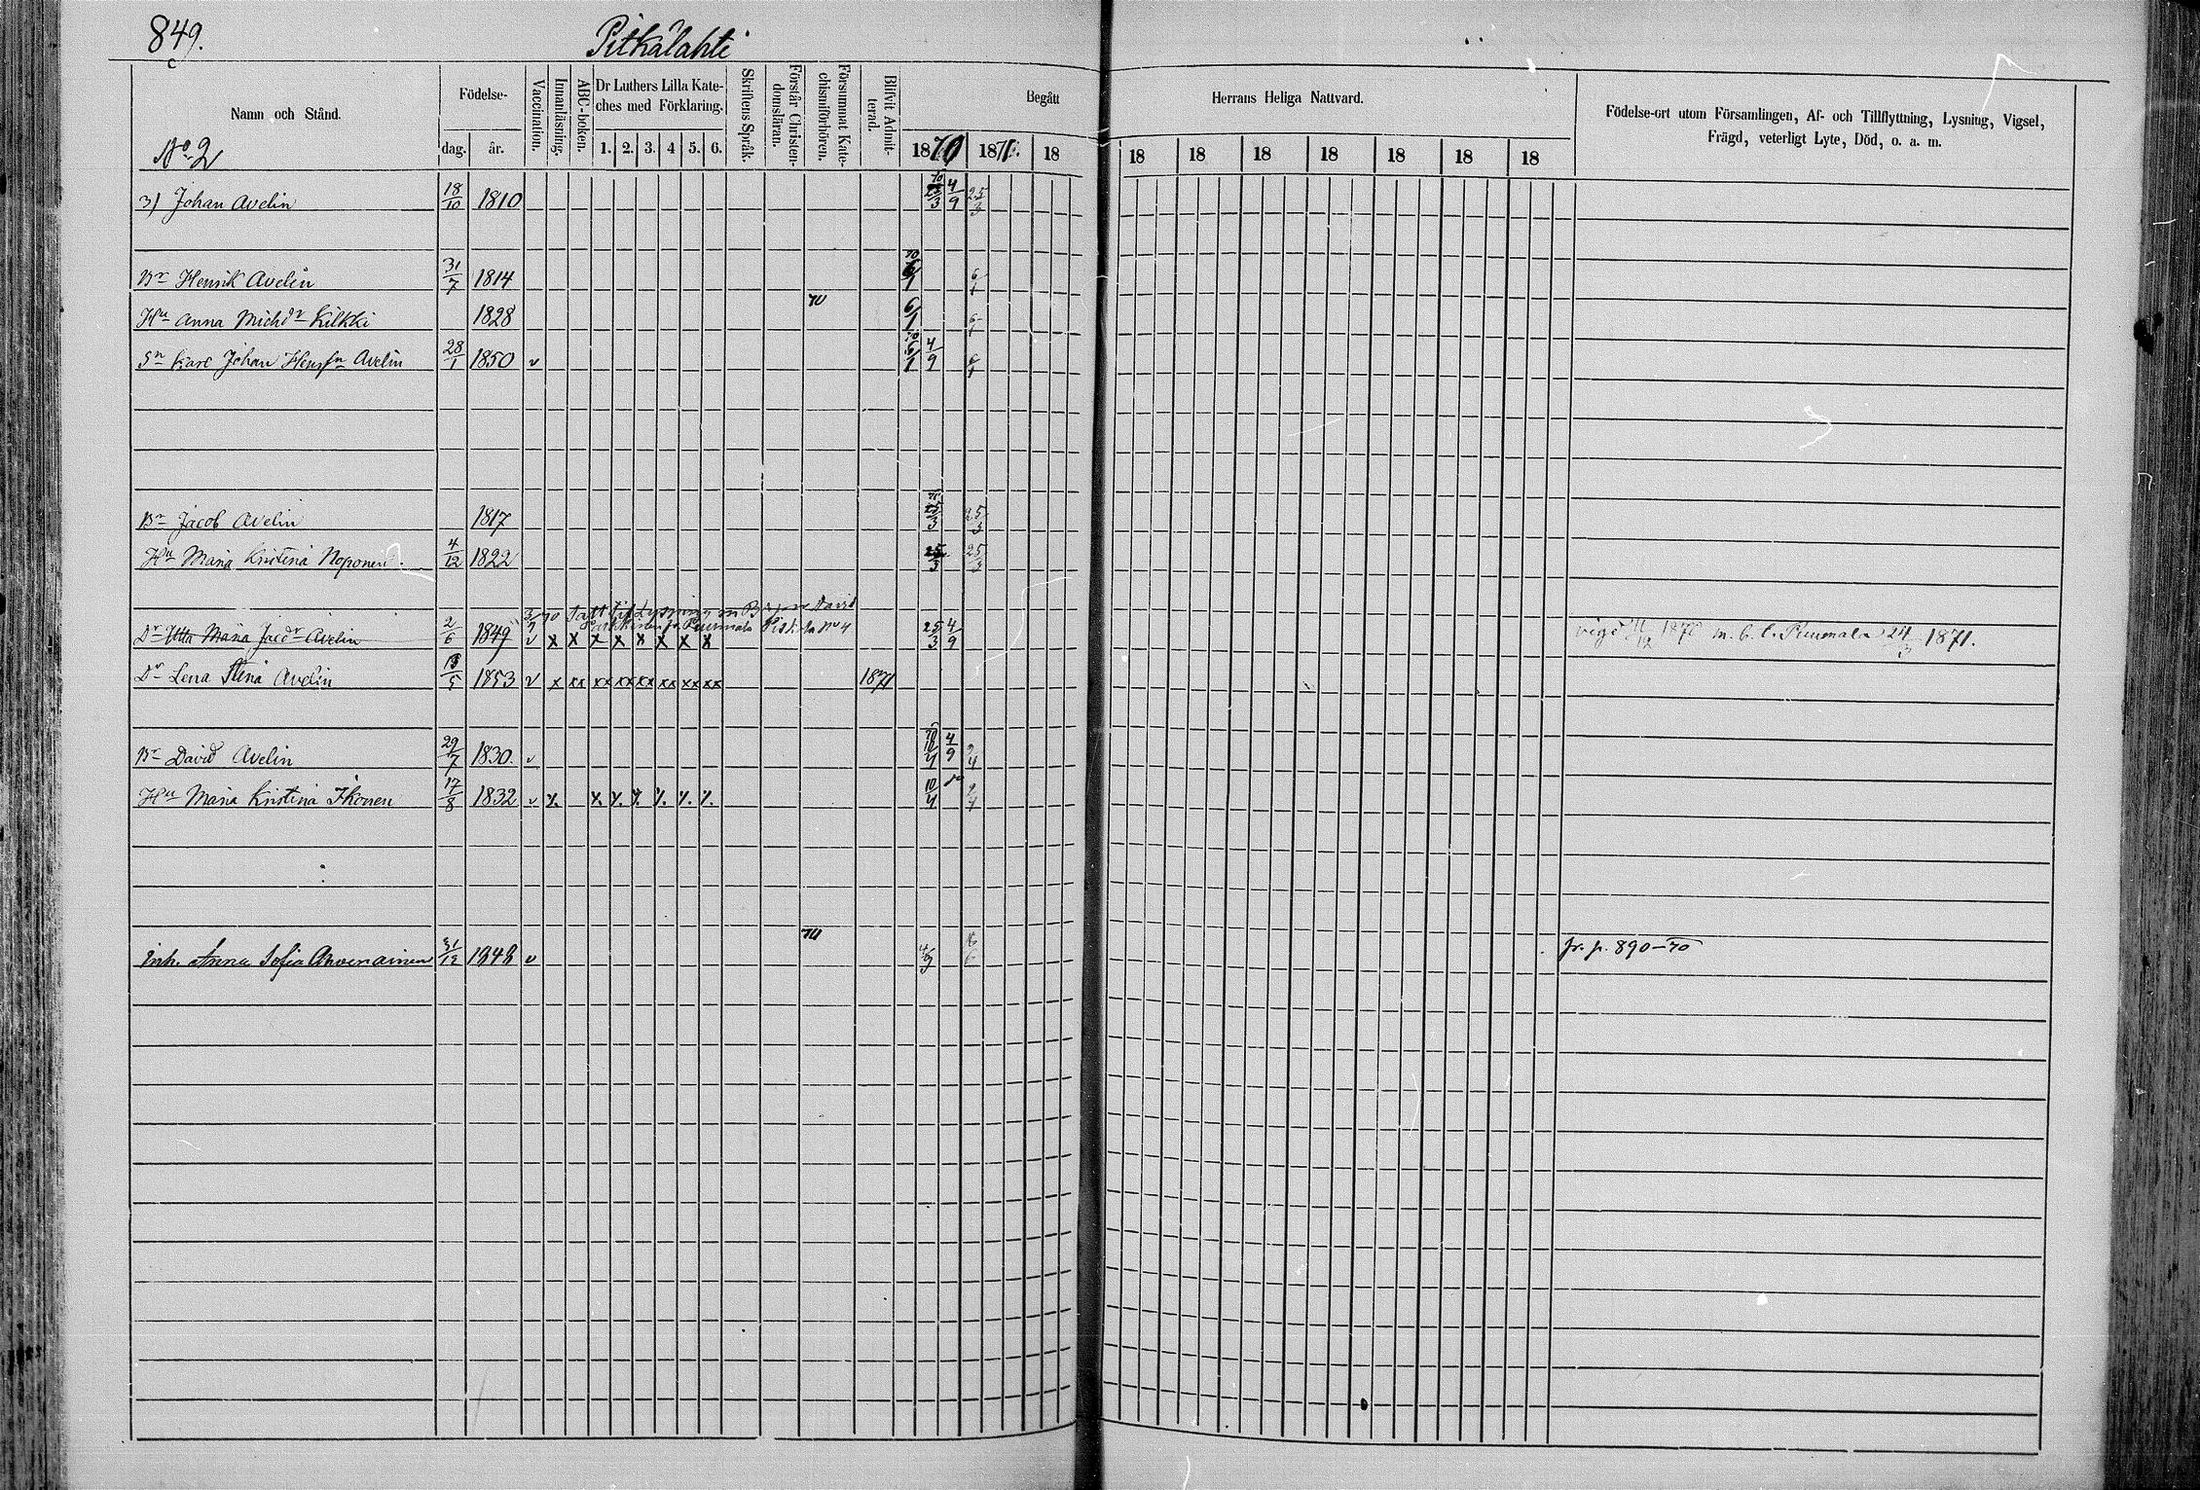 849.
Pitkälahti
Namn och Stånd.
No 2
Födelse-
dag.
år.
Vaccination.
Innanläsning.
ABC-boken.
Dr Luthers Lilla Kate-
ches med Förklaring.
1. 2. 3. 4 5. 6.
Skriftens Språk.
Förstår Christen-
domsläran.
Försummat Kate-
chismiförhören.
Blifvit Admit-
terad.
Begått
Herrans Heliga Nattvard.
1870 1871. 18 18 18 18 18 18 18 18
Födelse-ort utom Församlingen, Af- och Tillflyttning, Lysning, Vigsel,
Frägd, veterligt Lyte, Död, o. a. m.
3) Johan Avelin 18/10 1810 25/3 4/9 25/3
Br Henrik Avelin 31/7 1814 6/1 6/1
Hu Anna Michdr Kilkki 1828 70 6/1 6/1
Sn Karl Johan Henrsn Avelin 28/1 1850 v 6/1 4/9 6/1
Br Jacob Avelin 1817 25/3 25/3
Hu Maria Kristina Noponen. 4/12 1822 25/3 25/3
Dr Utta Maria Jacdr Avelin 2/6 1849 v x x x x x x x x 25/3 4/9 1870 m. b. t. Puumala 24/3 1871.
Dr Lena Stina Avelin 1853 v x xx xx xx xx xx xx xx 1871
Br David Avelin 29/7 1830. v 4/9 9/4
Hu Maria Kristina Ikonen 17/8 1832 v 10/4 9/4
Inh. Anna Sofia Ahvenainen 31/12 1848 v 70 4/9 fr. p. 890-70